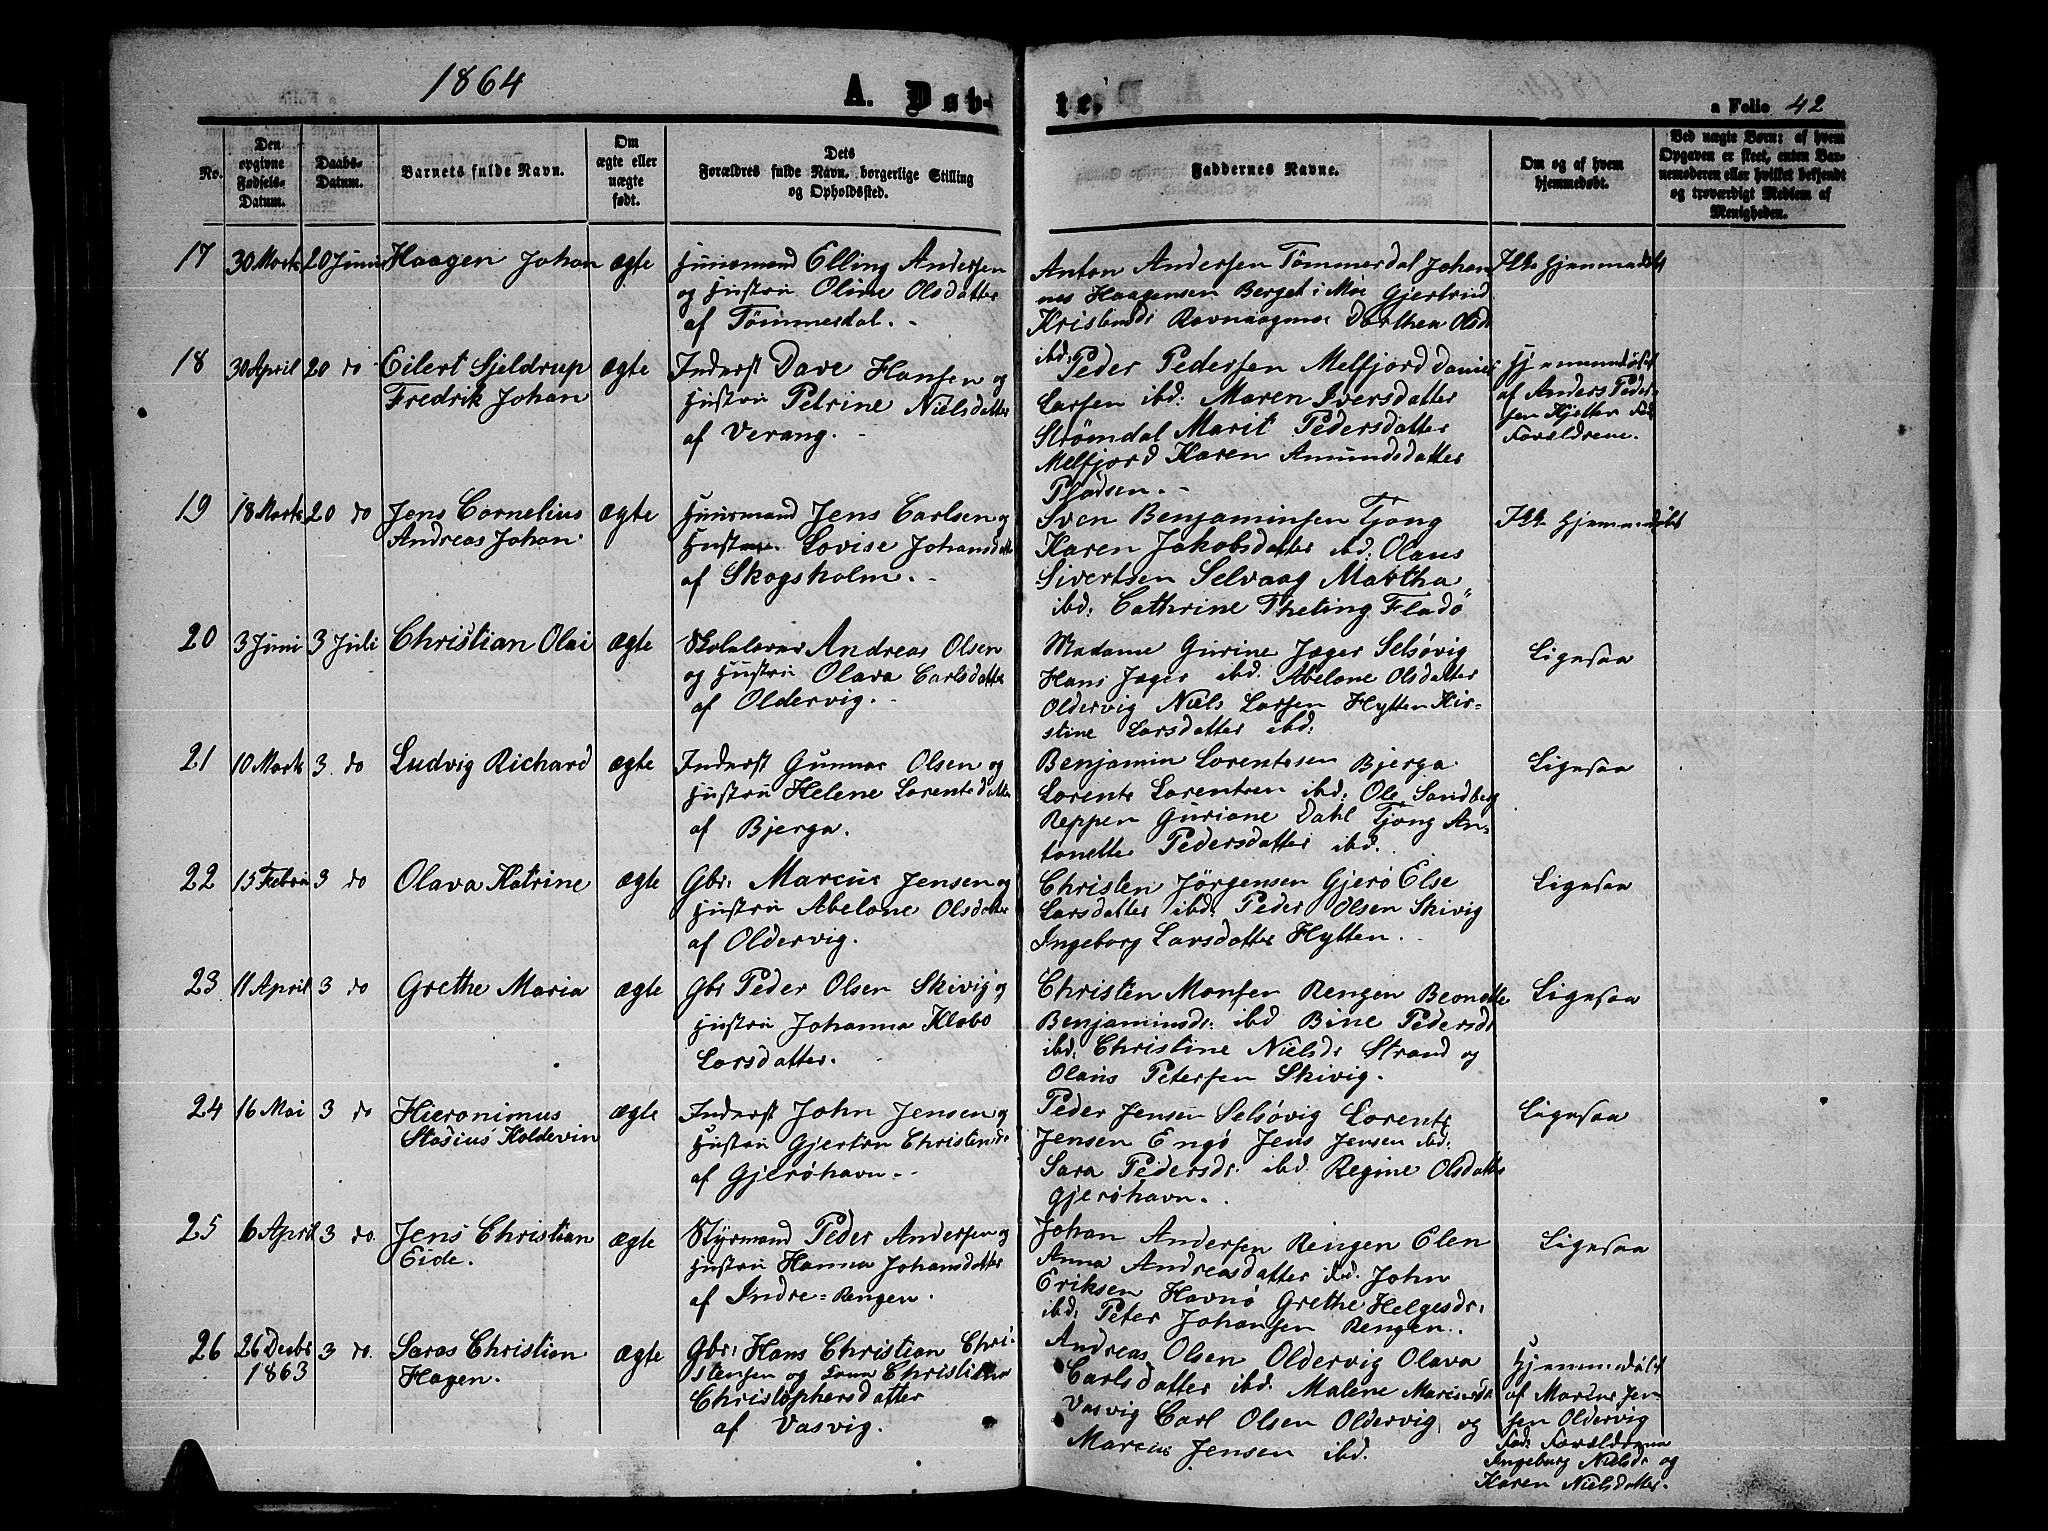 1864
A. Døb-
te.
a Folio 42
No.
Den
opgivne
Fødsels-
Datum.
Daabs-
Datum.
Barnets fulde Navn.
Om
ægte eller
uægte
født.
Dets
Forældres fulde Navn, borgerlige Stilling
og Opholdssted.
Faddernes Navne.
Om og af hvem
hjemmedøbt.
Ved uægte Børn: af hvem
Opgaven er skeet, enten Bar-
nemoderen eller hvilket bekjendt
og troværdigt Medlem af
Menigheden.
17 30 Marts 20 Juni Haagen Johan ægte
Huusmand Elling Andersen
og Hustru Oline Olsdatter
af Tømmerdal.
Anton Andersen Tömmerdal Johan
nes Haagensen Berget i Moe Gjertrud
Dorthea Olsdr
ibd:
Ikke hjemmedöbt
18 30 April 20 do Eilert Sjeldrup
Fredrik Johan
ægte
Inderst Dave Hansen og
Hustru Petrine Nielsdatter
af Verang.
Peder Pedersen Melfjord Daniel
Larsen ibd: Maren Iversdatter
Strømdal Marit Pedersdatter
Melfjord Karen Amundsdatter
Pladsen.
Hjemmedøbt
af Anders Peder-
sen Fad
Forældrene.
19 18 Marts 20 do Jens Cornelius
Andreas Johan.
ægte
Huusmand Jens Carlsen og
Hustru Lovise Johansdatt
af Skogsholm.
Sven Benjaminsen Tjong
Karen Jakobsdatter ibd: Olaus
Sivertsen Selvaag Martha
ibd: Cathrine Theting Fladö
Ikke hjemmedöbt
20 3 Juni 3 Juli Christian Olai ægte
Skolelærer Andreas Olsen
og Hustru Olava Carlsdatter
af Oldervig.
Madame Gurine Jæger Selsövig
Hans Jæger ibd. Abelone Olsdatter
Oldervig Niels Larsen Hytten Kir-
stine Larsdatter ibd:
Ligesaa
21 10 Marts 3. do Ludvig Richard ægte
Inderst Gunnar Olsen og
Hustru Helene Lorentsdatter
af Bjerga.
Benjamin Lorentsen Bjerga
Lorents Lorentsen ibd: Ole Sandberg
Reppen Guriane Dahl Tjong An-
tonette Pedersdatter ibd.
Ligesaa
22 15 Febru 3 do Olava Katrine ægte
Gbr: Marcus Jensen og
Hustru Abelone Olsdatter
af Oldervig.
Christen Jörgensen Gjerö Else
Larsdatter ibd: Peder Olsen Skivig
Ingeborg Larsdatter Hytten.
Ligesaa
23 11 April 3 do Grethe Maria ægte
Gbr Peder Olsen Skivig og
Hustru Johanna Klebo
Larsdatter.
Christen Monsen Rengen Beonette
Benjaminsdr: ibd Bine Pedersdr
ibd: Christine Nielsdr Strand og
Olaus Petersen Skivig.
Ligesaa
24 16 Mai 3 do Hieronimus
Stasius Koldevin
ægte
Inderst John Jensen og
Hustru Gjertru Christensdr
af Gjeröhavn.
Peder Jensen Selsövig Lorents
Jensen Engö Jens Jensen ibd:
Sara Pedersdr. ibd. Regine Olsdatter
Gjeröhavn.
Ligesaa
25 6 April 3 do. Jens Christian
Eide.
ægte
Styrmand Peder Andersen og
Hustru Hanna Johansdatter
af Indre-Rengen.
Johan Andersen Rengen Elen
Anna Andreasdatter ibd. John
Eriksen Havnö Grethe Helgesdr.
ibd: Peter Johansen Rengen.
Ligesaa
26 26 Decbr
1863
3 do. Saras Christian
Hagen.
ægte
Gbr: Hans Christian Chri-
stensen og Christine
Christophersdatter
af Vasvig.
Andreas Olsen Oldervig Olava
Carlsdatter ibd. Malene
Vasvig Carl Olsen Oldervig, og
Marcus Jensen ibd.
Hjemmedøbt
af Marcus Jen-
sen Oldervig
Fad: Forældrene
Ingeborg Nielsdr og
Karen Nielsdatter.